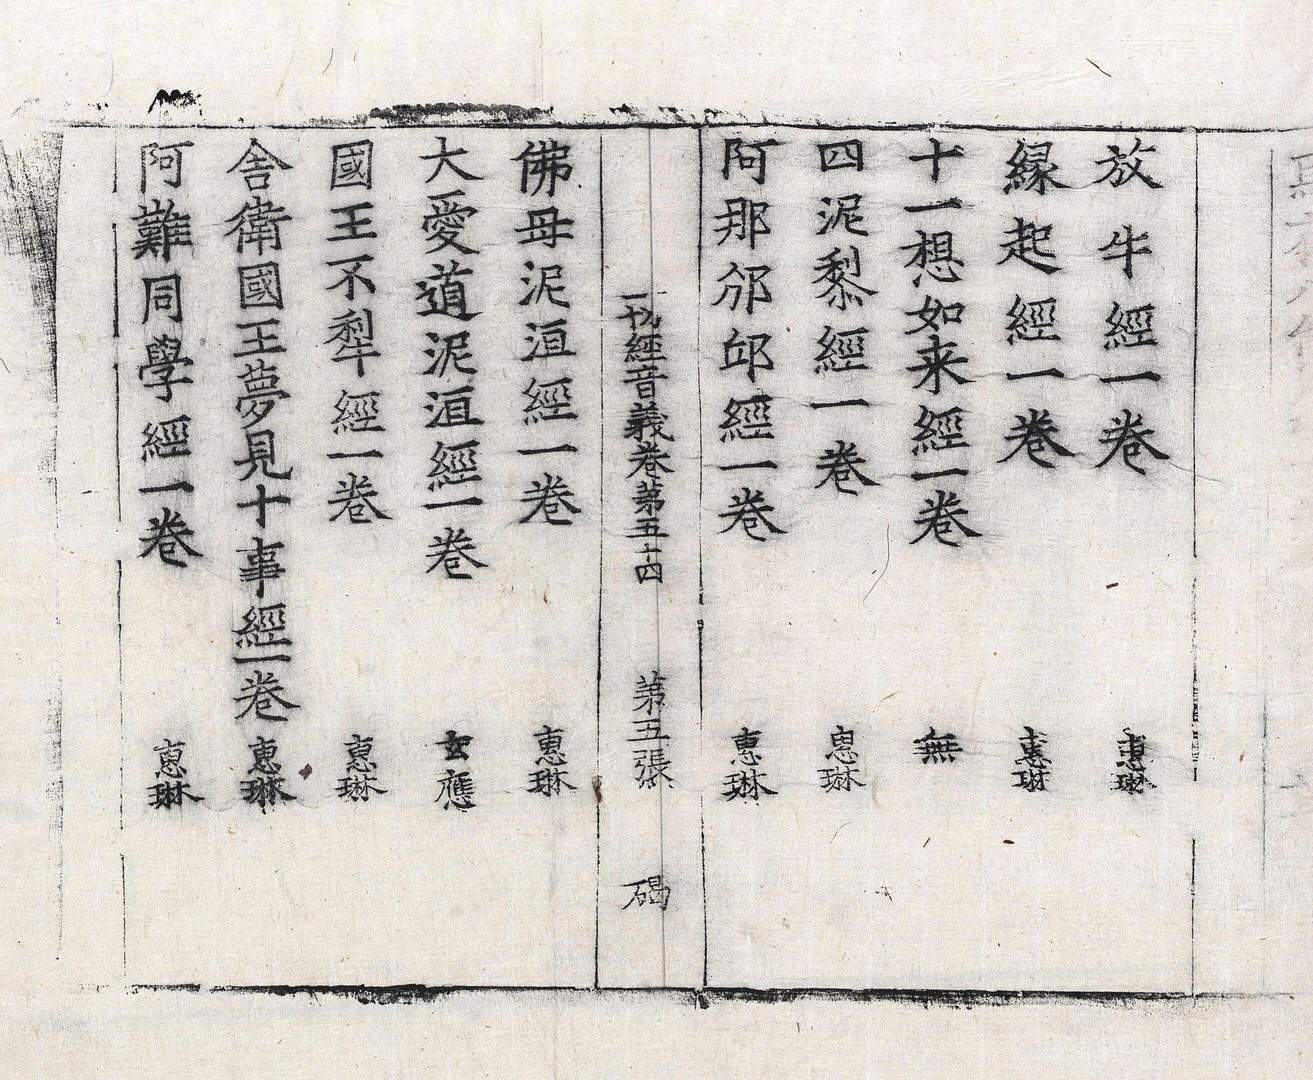 放牛經一卷 惠琳
緣起經一卷 惠琳
十一想如来經一卷 無
四泥黎經一卷 惠琳
阿那邠邸經一卷 惠琳
一切經音義卷第五十四 第五張 碣
佛母泥洹經一卷 惠琳
大愛道泥洹經一卷 玄應
國王不犁經一卷 惠琳
舎衛國王夢見十事經一卷 惠琳
阿難同學經一卷 惠琳